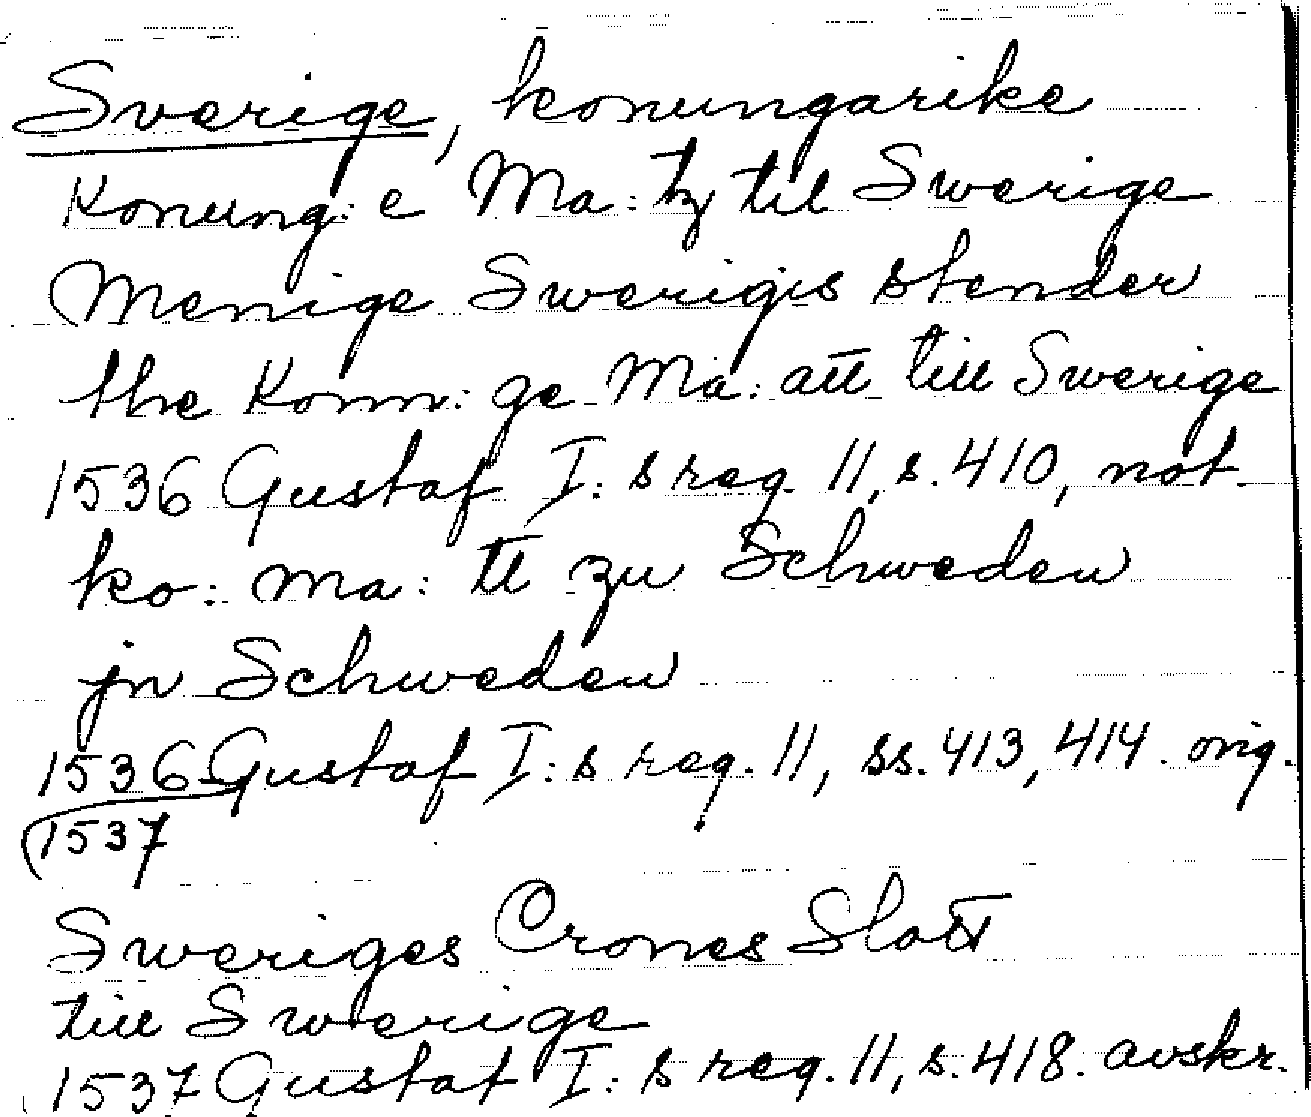 Sverige, konungarike
Konung: e Ma: tz til Swerige
Menige Swerigis stender
the Konn: ge Ma: att till Swerige
1536 Gustaf I: s reg. 11, s. 410, not.
ko: Ma: tt zu Schweden
jn Schweden
1536 Gustaf I: s reg. 11, ss. 413, 414. orig.
1537
Sweriges Crones Slott
till Swerige
1537 Gustaf I: s reg. 11, s. 418. avskr.